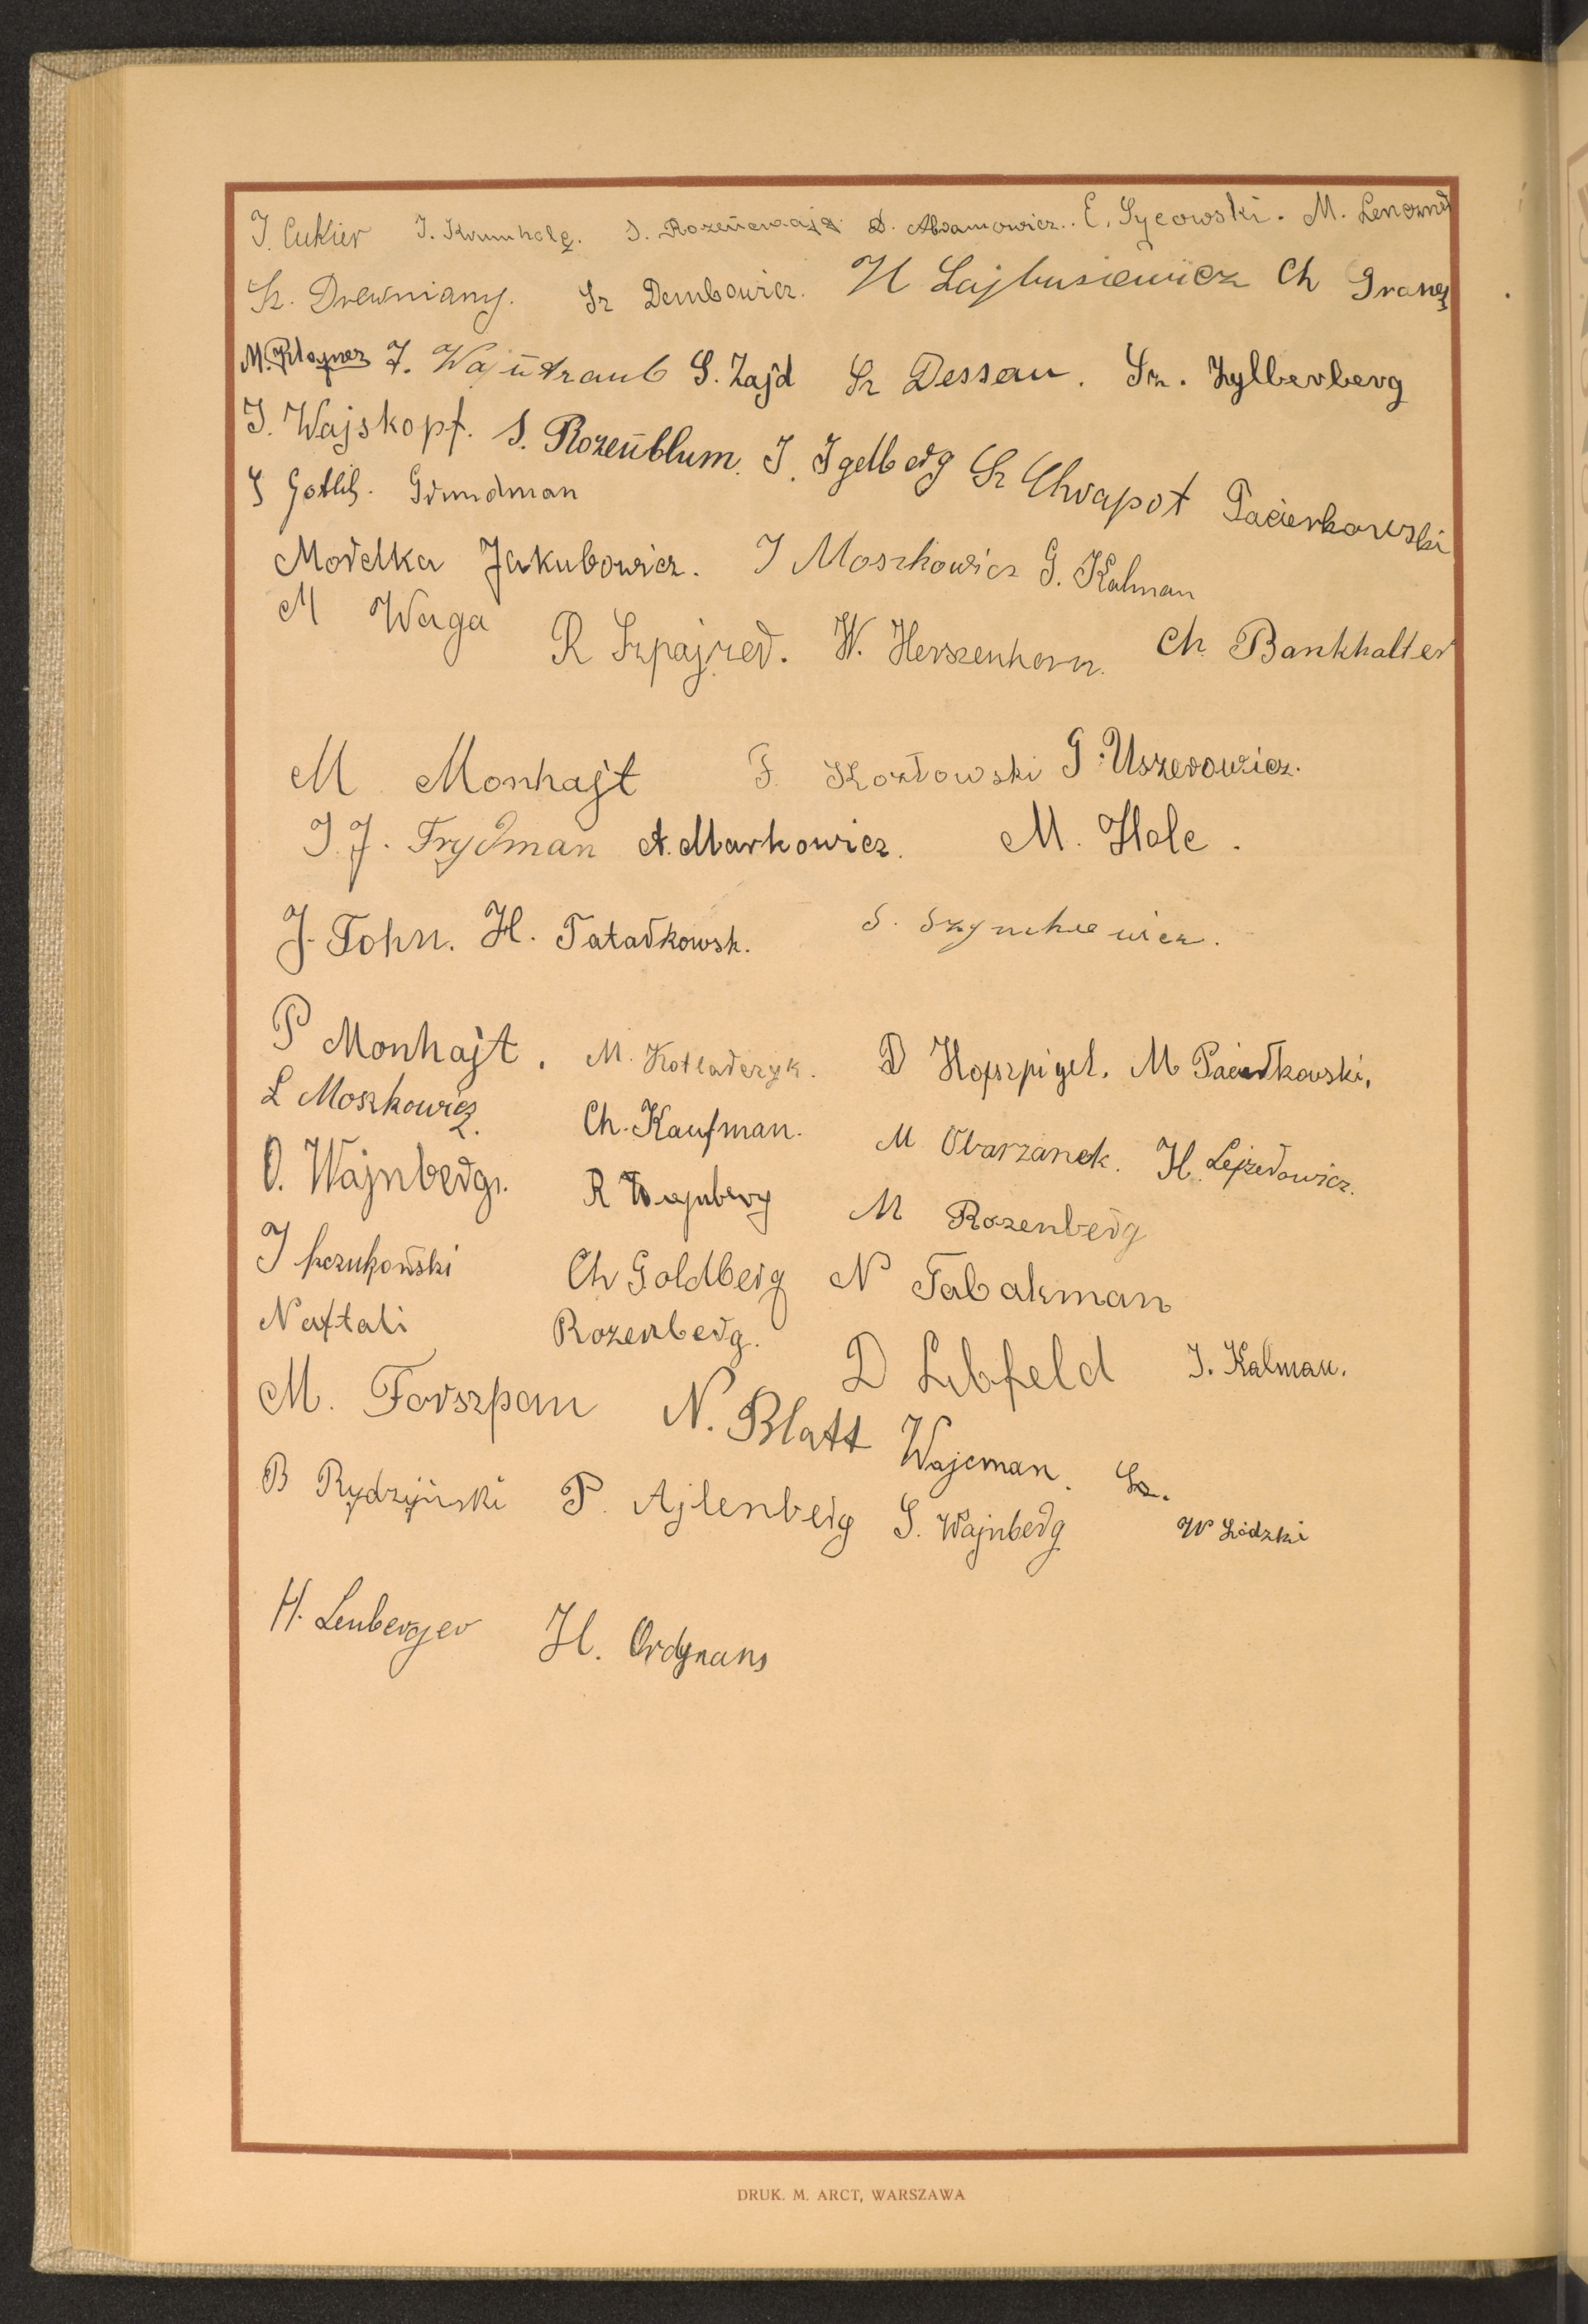 J. Cukier J. Krumholę. S. D. Abramowicz. E. Sycowski. M.
Sz. Drewniany. Sz Dembowicz. H Lajbusiewicz Ch
M. Klajner J. Wajntraub S. Zajd Sz Dessau. Sz. Zylberberg
J. Wajskopf. S. Rozenblum. J. Igelberg Sz Chrapot Pacierkowski
J Gotlib. Grundman
Mordka Jakubowicz. J Moszkowicz G. Kalman
M Waga R Szpajzer. W. Herszenhorn. Ch. Bankhalter
M Monhajt F. Kozłowski G. Uszerowicz.
J. J. Frydman A. Markowicz. M. Holc.
J. Tohn. H. Tatarkowsk. S.
P Monhajt. M. Kotlarczyk. D Hofszpigel. M Paciorkowski.
L Moszkowicz. Ch. Kaufman. M Obarzanek. H. Lejzerowicz.
O. Wajnberg. R Wajnberg M Rozenberg
J Ch Goldberg N Tabakman
Naftali Rozenberg. D Libfeld J. Kalman.
M. Forszpan N. Blatt Wajcman. Sz.
B Rydzyński P. Ajlenberg S. Wajnberg W Łódzki
H. Lenberger H. Ordynans
DRUK. M. ARCT, WARSZAWA